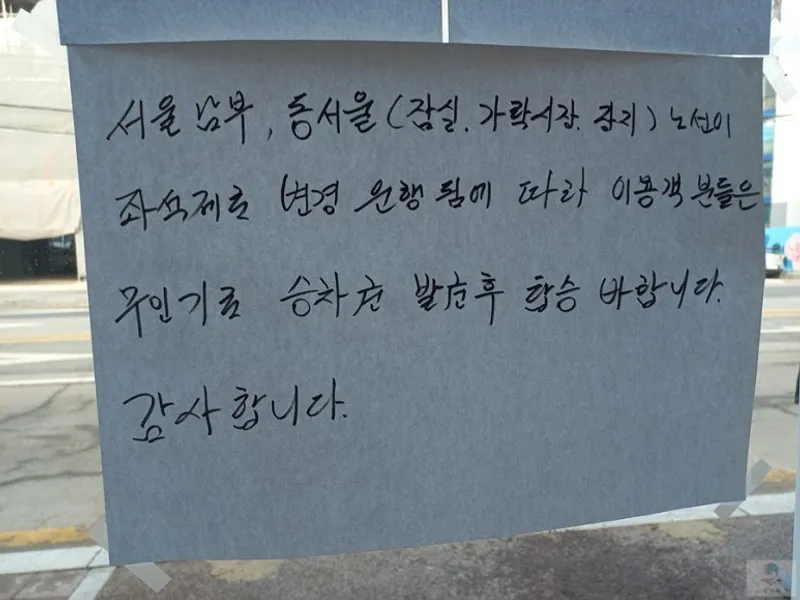 서울남부, 동서울(잠실. 가락시장. 장지) 노선이
좌석제로 변경 운행됨에 따라 이용객 분들은
무인기로 승차권 발권후 탑승 바랍니다.
감사합니다.